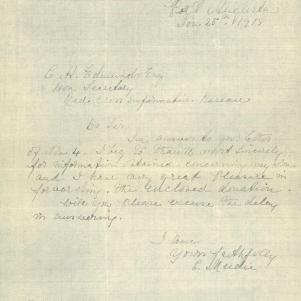 Port Augusta
Nov. 25th 1918
C. A. Edmunds Esq
Hon Secretary
Red Cross Information Bureau
Dr Sir
In answer to your letter
of Nov 4. I beg to thank you most sincerely
for information obtained concerning my son
and I have very great pleasure in
forwarding the enclosed donation.
Will you please excuse the delay
in answering.
I am
Yours faithfully
E. Mudie